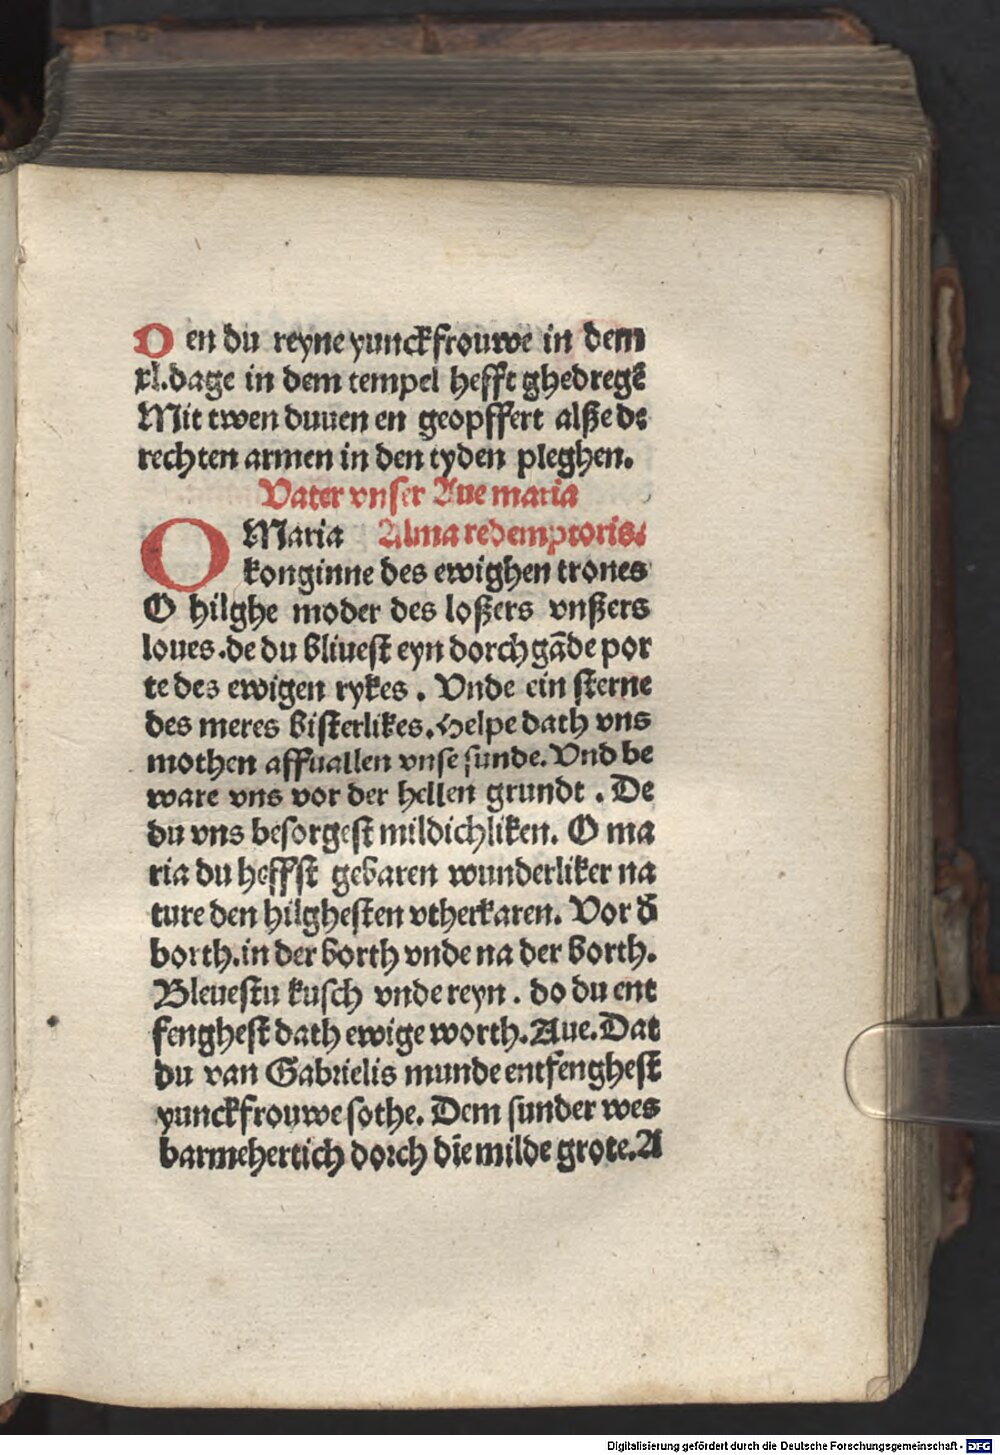 Den du reyne yunckfrouwe in dem
xl.dage in dem tempel hefft ghedregē
Mit twen duuen en geopffert alße de
rechten armen in den tyden pleghen.
Vater vnser Aue maria
O Maria Alma redemptoris.
konginne des ewighen trones
O hilghe moder des loßers vnßers
loues.de du bliuest eyn dorch gāde por
te des ewigen rykes . Vnde ein sterne
des meres bisterlikes.Helpe dath vns
mothen affuallen vnse sunde. Vnd be
ware vns vor der hellen grundt . De
du vns besorgest mildichliken. O ma
ria du heffst gebaren wunderliker na
ture den hilghesten vtherkaren. Vor d̄
borth.in der borth vnde na der borth.
Bleuestu kusch vnde reyn . do du ent
fenghest dath ewige worth.Aue.Dat
du van Gabrielis munde entfenghest
yunckfrouwe sothe. Dem sunder wes
barmehertich dorch dīe milde grote.A
Digitalisierung gefördert durch die Deutsche Forschungsgemeinschaft - DFG